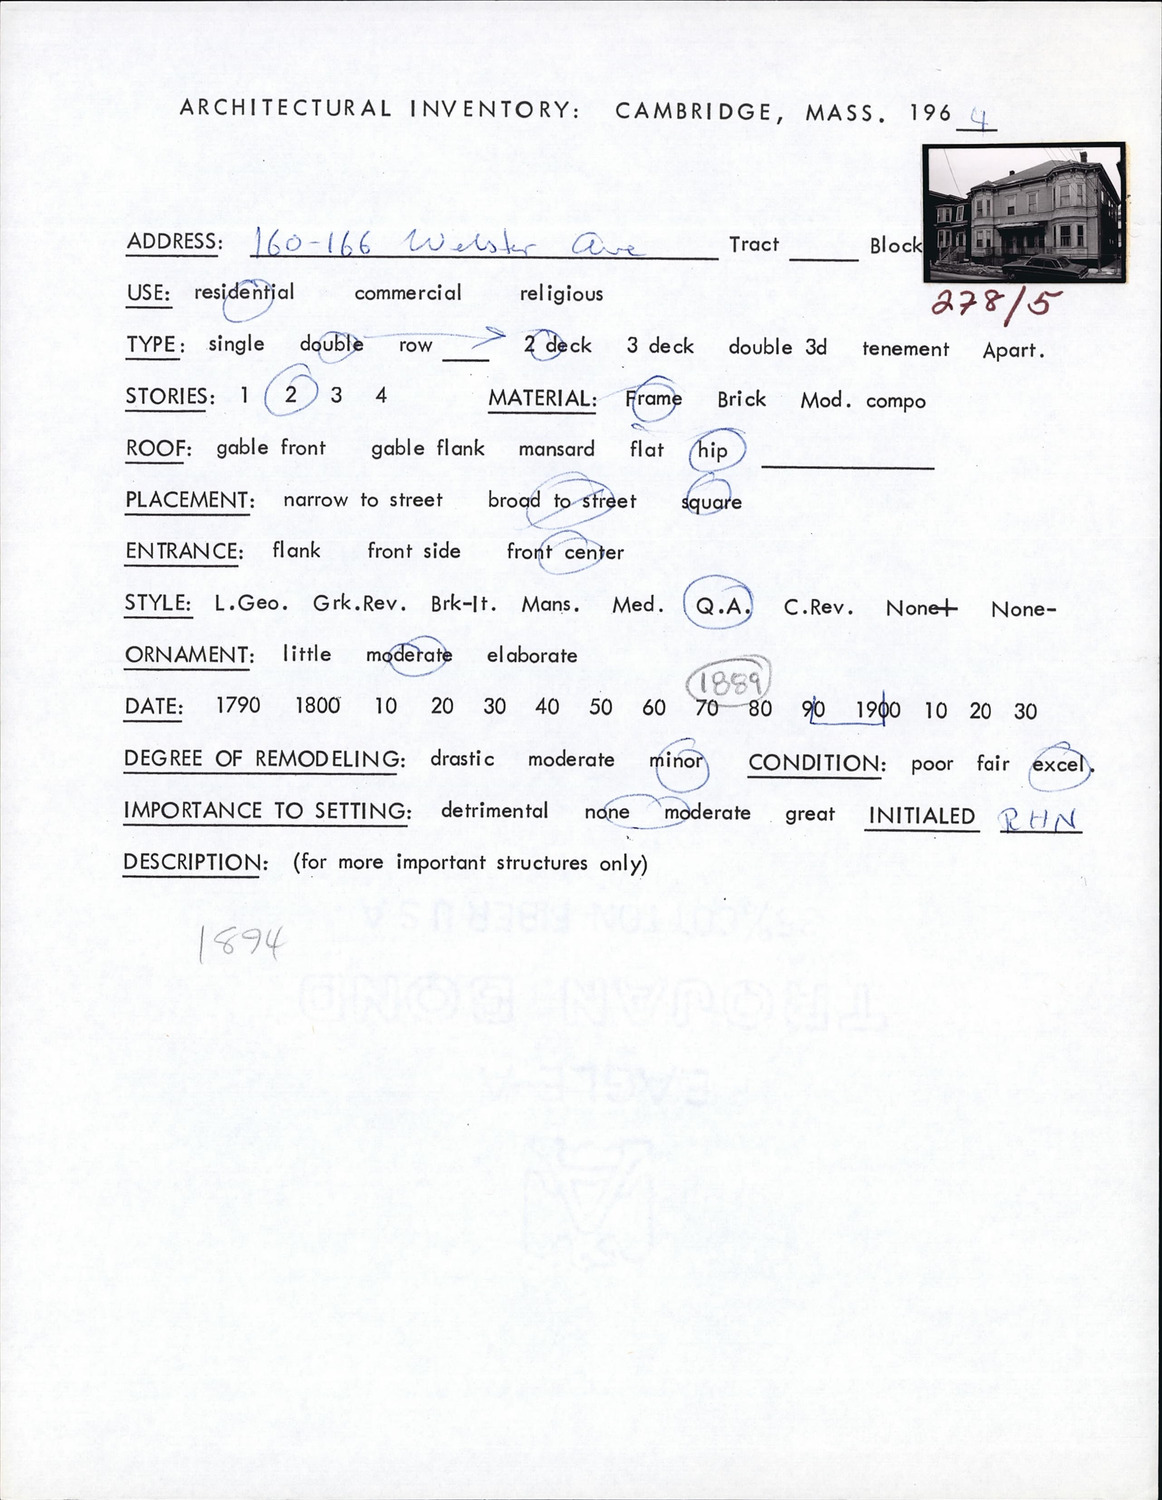 ARCHITECTURAL INVENTORY: CAMBRIDGE, MASS. 1964
ADDRESS: 160-166 Webster Ave Tract ____ Block
278/5
USE: residential commercial religious
TYPE: single double row ____ 2 deck 3 deck double 3d tenement Apart.
STORIES: 1 2 3 4 MATERIAL: Frame Brick Mod. compo
ROOF: gable front gable flank mansard flat hip ____
PLACEMENT: narrow to street broad to street square
ENTRANCE: flank front side front center
STYLE: L.Geo. Grk.Rev. Brk-It. Mans. Med. Q.A. C.Rev. None+ None-
ORNAMENT: little moderate elaborate
1889
DATE: 1790 1800 10 20 30 40 50 60 70 80 90 1900 10 20 30
DEGREE OF REMODELING: drastic moderate minor CONDITION: poor fair excel.
IMPORTANCE TO SETTING: detrimental none moderate great INITIALED RHN
DESCRIPTION: (for more important structures only)
1894